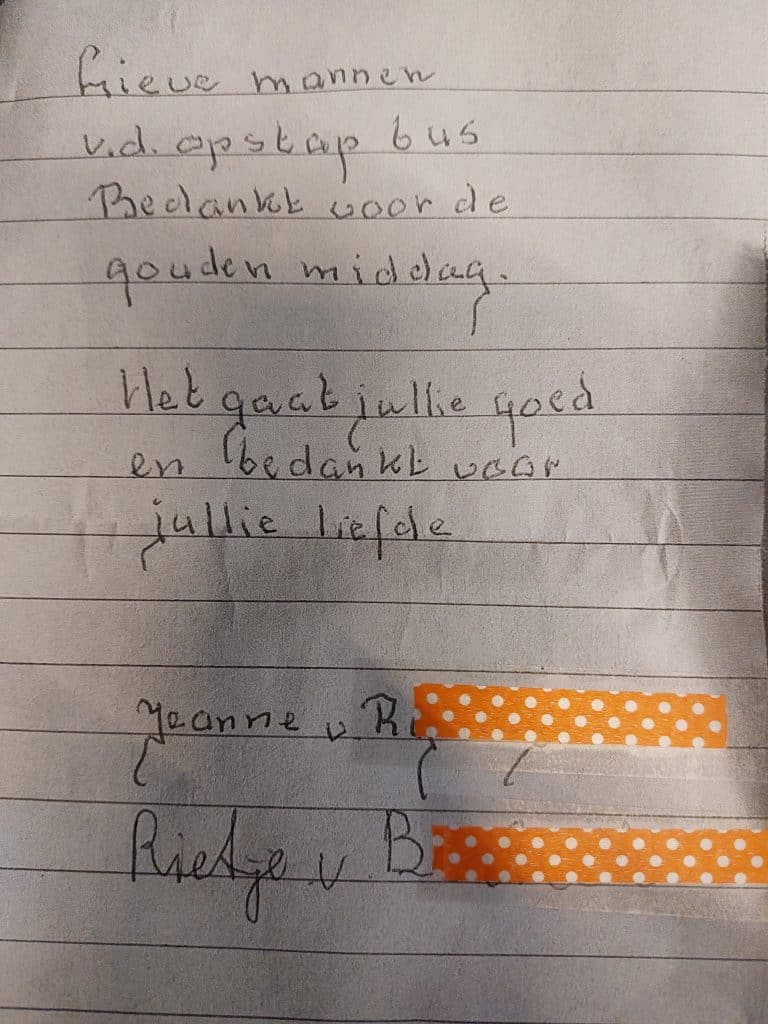 Lieve mannen
v.d. opstap bus
Bedankt voor de
gouden middag.
Het gaat jullie goed
en bedankt voor
jullie liefde
Jeanne v Ri
Rietje v. B